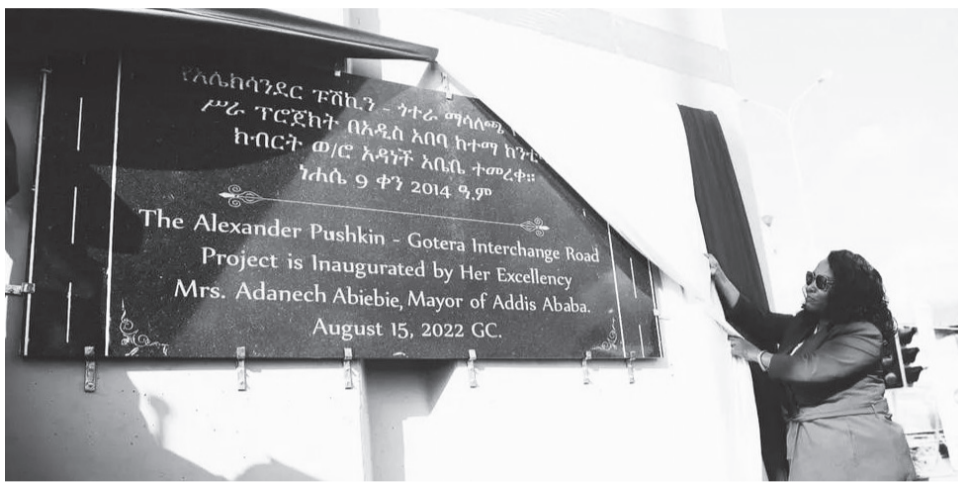 የአሌክሳንደር ፑሽኪን - ጎተራ ማሳለጫ
ሥራ ፕሮጀክት በአዲስ አበባ ከተማ
ክብርት ወ/ሮ አዳነች አቤቤ ተመረቀ።
ነሐሴ 9 ቀን 2014 ዓ.ም
The Alexander Pushkin - Gotera Interchange Road
Project is Inaugurated by Her Excellency
Mrs. Adanech Abiebie, Mayor of Addis Ababa.
August 15, 2022 GC.